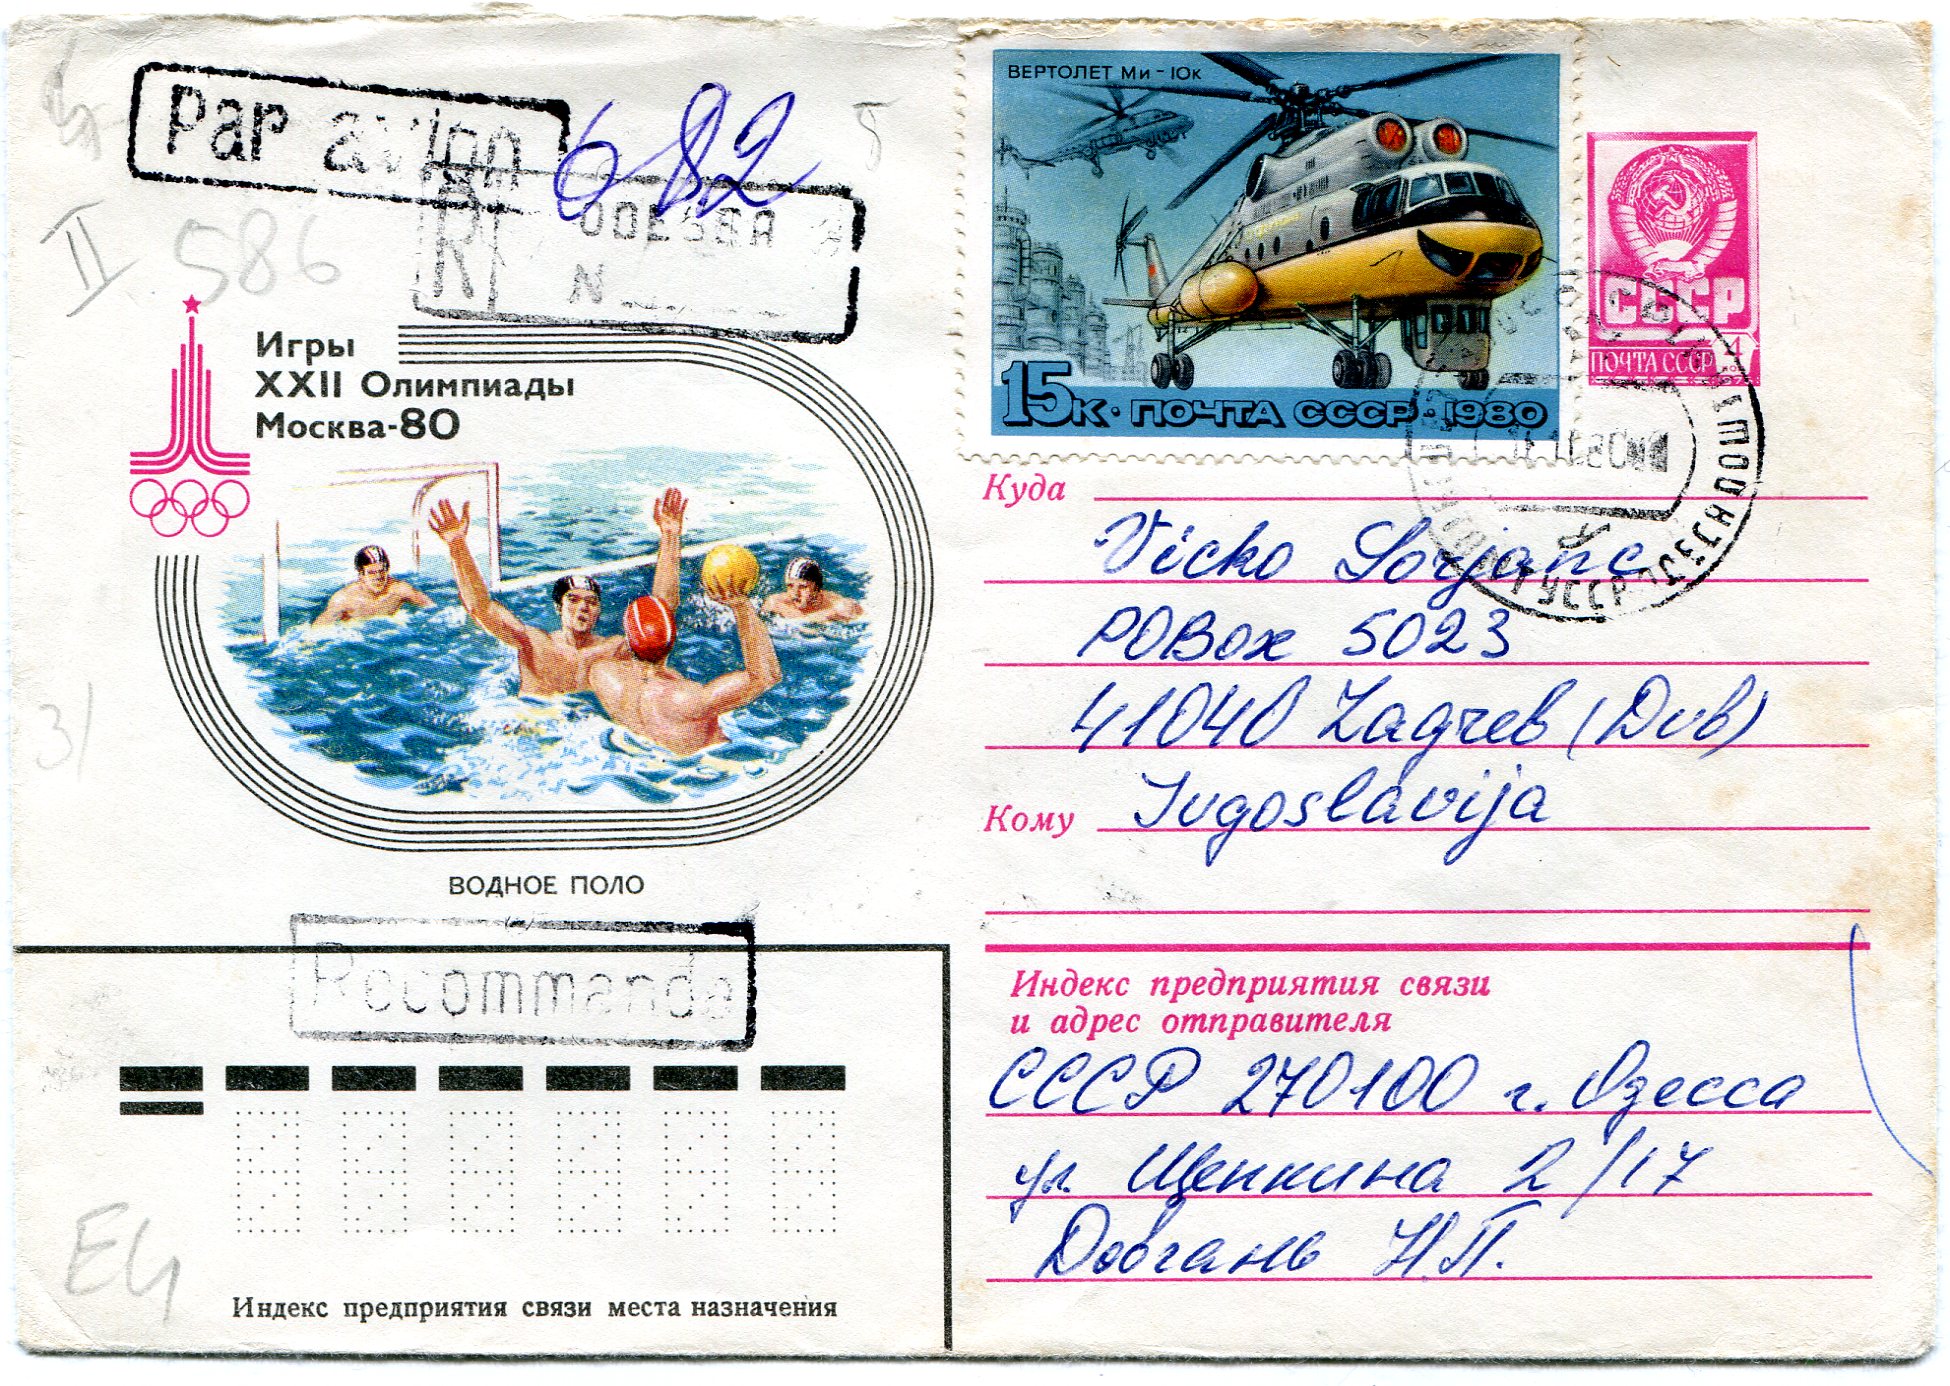 Par avion
682
R ODESSA
N
II
586
Игры
XXII Олимпиады
Москва-80
ВОДНОЕ ПОЛО
Recommande
31
Ец
Индекс предприятия связи места назначения
ВЕРТОЛЕТ Ми-10к
15к·ПОЧТА СССР·1980
СССР
ПОЧТА СССР 4
УССР ОДЕССА ПОЧТАМТ
Куда
Vicko Sorjanc
POBox 5023
41040 Zagreb (Dub)
Кому Jugoslavija
Индекс предприятия связи
и адрес отправителя
СССР 270100 г. Одесса
ул. Щепкина 2/17
Довгань Н.П.